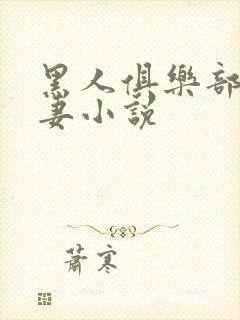 黑人俱樂部
妻小說
蕭寒